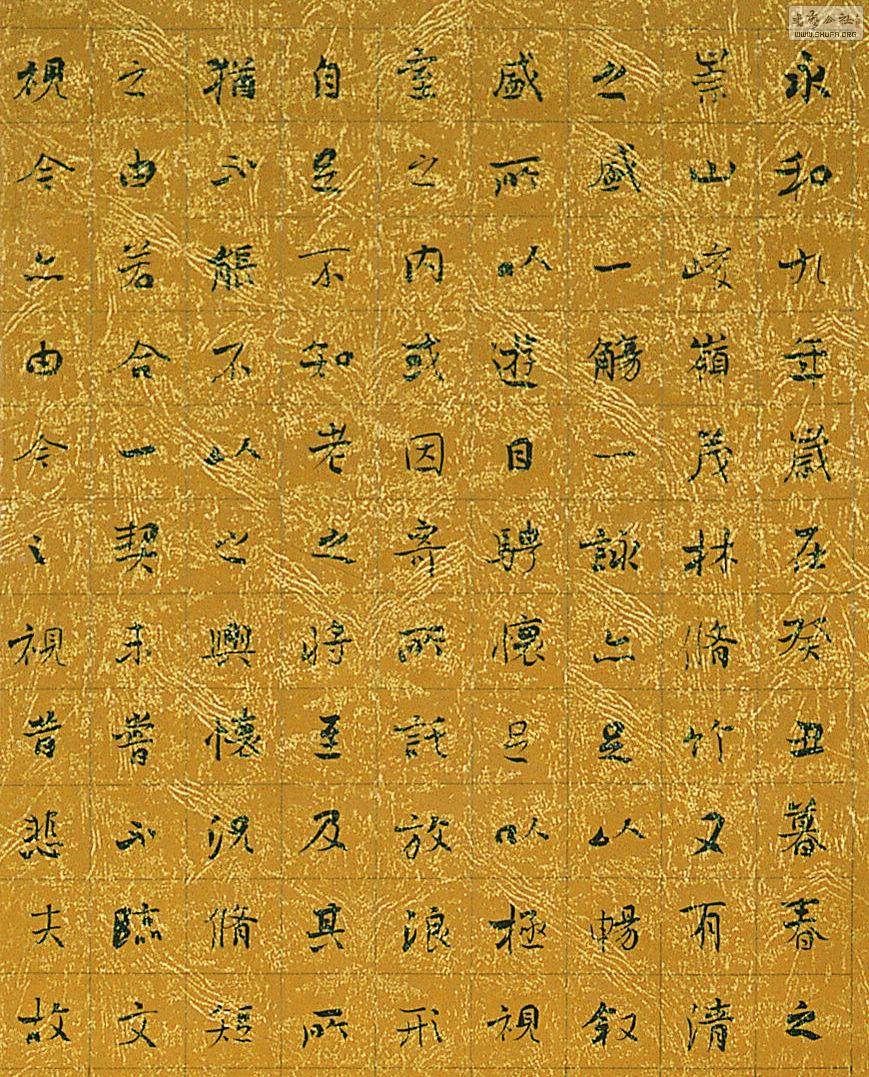 永和九年歲在癸丑暮春之
崇山峻嶺茂林脩竹又有清
之盛一觴一詠亦足以暢叙
盛所以遊目騁懷足以極視
室之内或因寄所託放浪形
自足不知老之將至及其所
猶不能不以之興懷況脩短
之由若合一契未嘗不臨文
視今亦由今之視昔悲夫故
书法公社
WWW.SHUFA.ORG